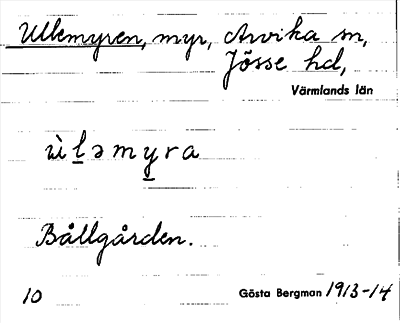 Ullemyren, myr, Arvika sn,
Jösse hd,
Värmlands län
ùləmyra
Bållgården.
10 Gösta Bergman 1913-14